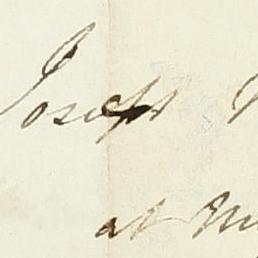 Joseph
at